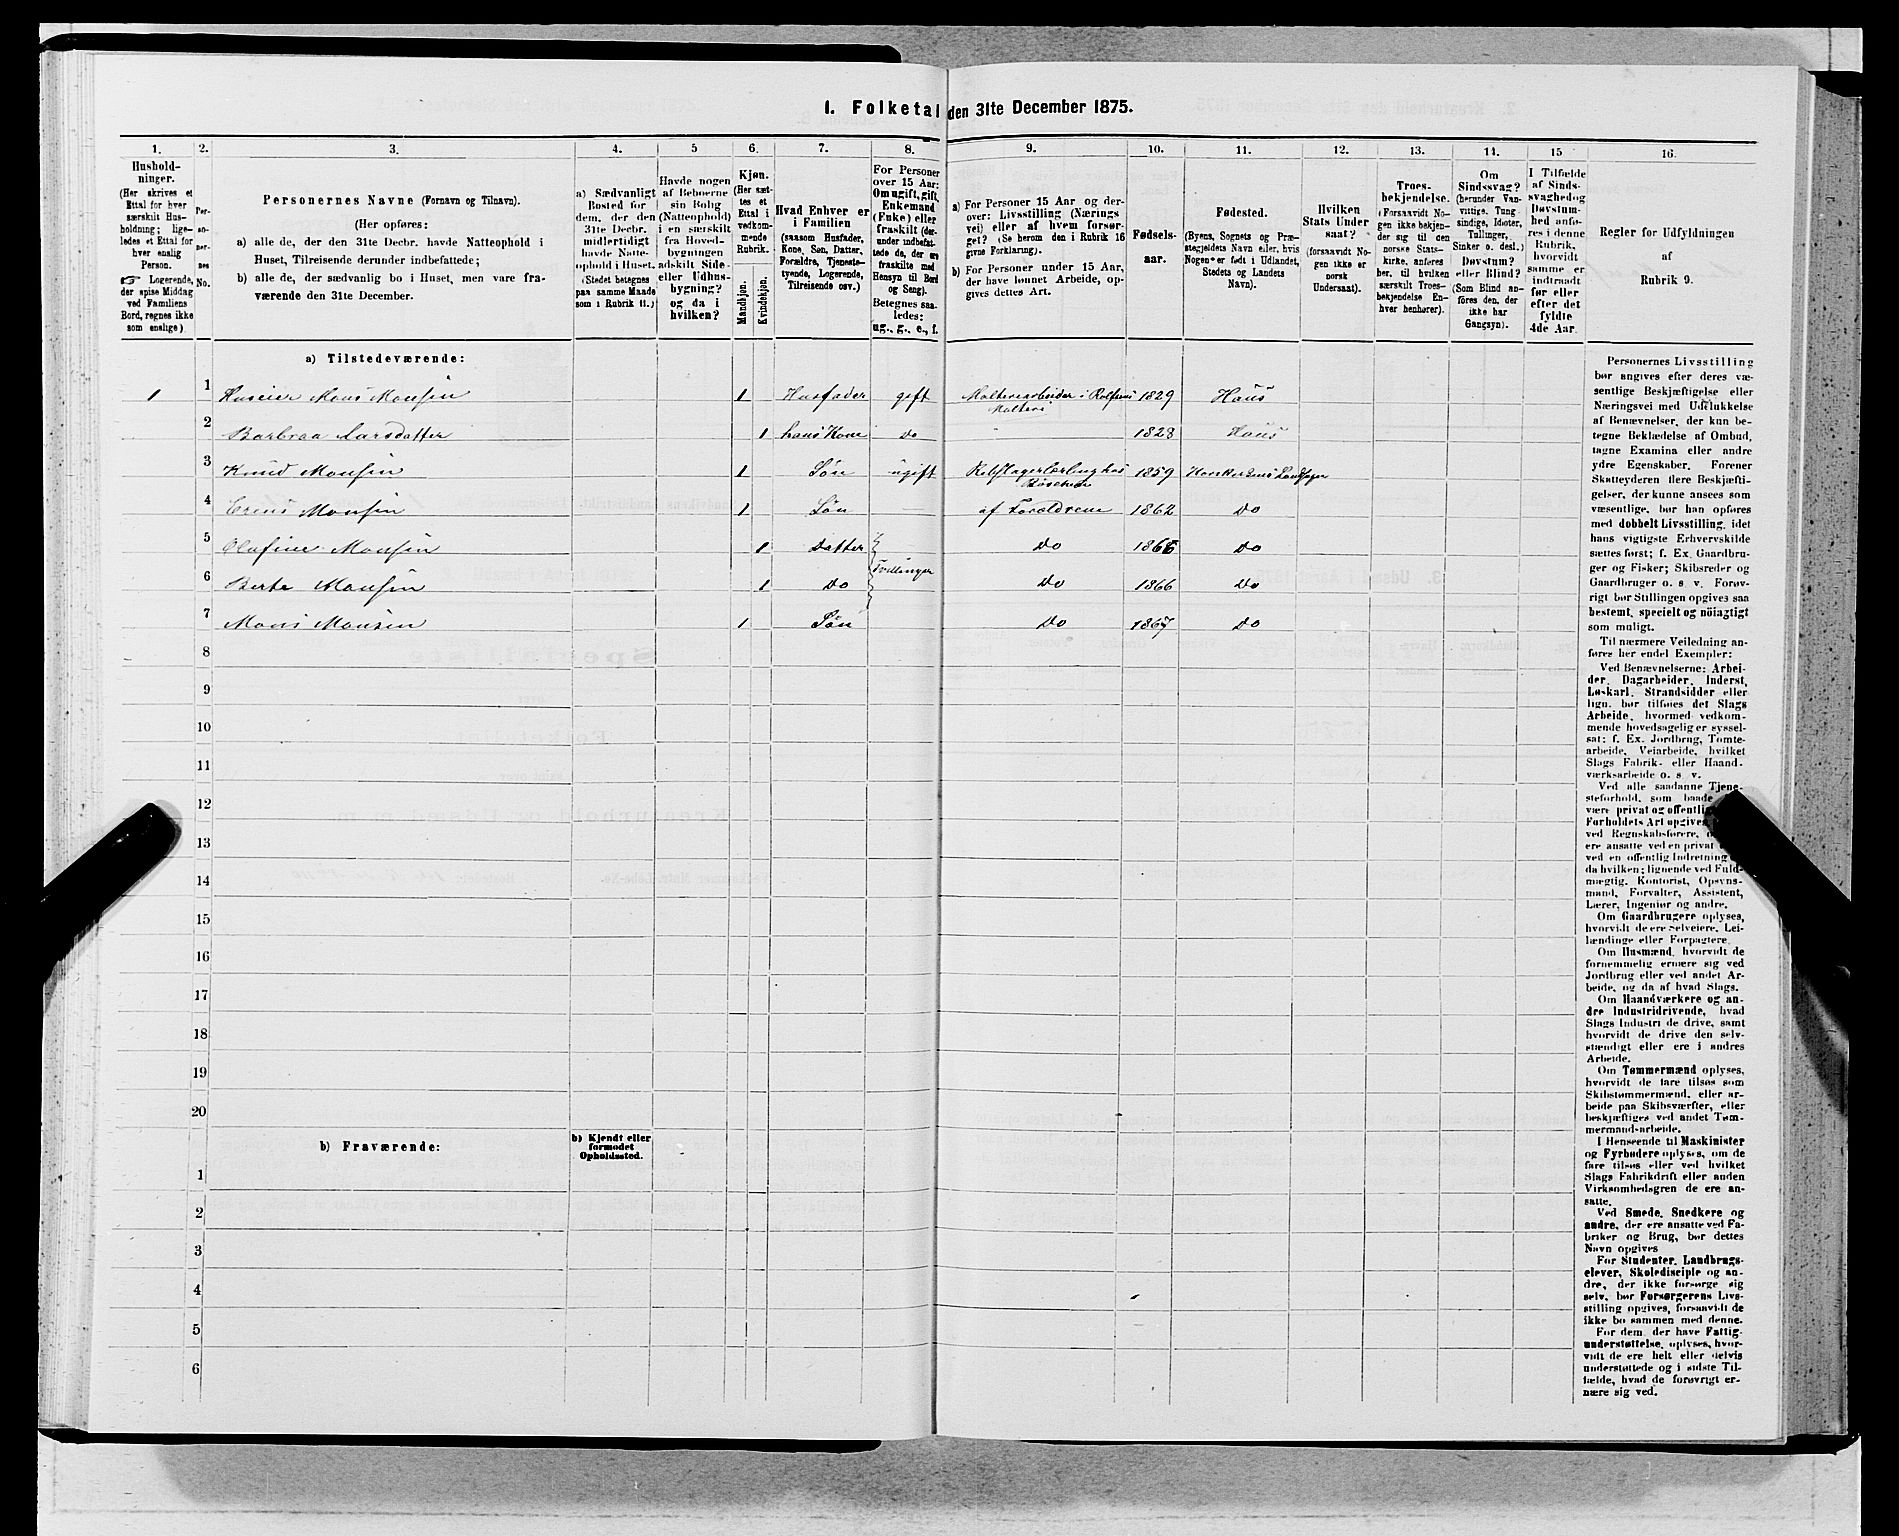 1. Folketal den 31te December 1875.
1. 2. 3. 4. 5 6. 7. 8. 9. 10. 11. 12. 13. 14. 15 16.
Hushold-
ninger.
(Her skrives et
Ettal for hver
særskilt Hus-
holdning; lige-
ledes et Ettal for
hver enslig
Person.
☞ Logerende,
der spise Middag
ved Familiens
Bord, regnes ikke
som enslige)
Per-
so-
ner-
nes
No.
Personernes Navne (Fornavn og Tilnavn).
(Her opføres:
a) alle de, der den 31te Decbr. havde Natteophold i
Huset, Tilreisende derunder indbefattede;
b) alle de, der sædvanlig bo i Huset, men vare fra-
værende den 31te December.
a) Sædvanligt
Bosted for
dem, der den
31te Decbr.
midlertidigt
havde Natte-
ophold i Huset.
(Stedet betegnes
paa samme Maade
som i Rubrik 11.)
Havde nogen
af Beboerne
sin Bolig
(Natteophold)
i en særskilt
fra Hoved-
bygningen
adskilt Side-
eller Udhus-
bygning?
og da i
hvilken?
Kjøn.
(Her sæt-
tes et
Ettal i
vedkom-
mende
Rubrik.
Mandkjøn.
Kvindekjøn.
Hvad Enhver er
i Familien
(saasom Husfader,
Kone, Søn, Datter,
Forældre, Tjeneste-
tyende, Logerende,
Tilreisende osv.)
For Personer
over 15 Aar:
Om ugift, gift,
Enkemand
(Enke) eller
fraskilt (der-
under indbefat-
tede de, der ere
fraskilte med
Hensyn til Bord
og Seng).
Betegnes saa-
ledes:
ug., g., e., f.
a) For Personer 15 Aar og der-
over: Livsstilling (Nærings
vei) eller af hvem forsør-
get? (Se herom den i Rubrik 16
givne Forklaring).
b) For Personer under 15 Aar,
der have lønnet Arbeide, op-
gives dettes Art.
Fødsels-
aar.
Fødested.
(Byens, Sognets og Præ-
stegjeldets Navn eller, hvis
Nogen er født i Udlandet,
Stedets og Landets
Navn).
Hvilken
Stats Under
saat?
(forsaavidt No-
gen ikke er
norsk
Undersaat).
Troes-
bekjendelse.
(Forsaavidt No-
gen ikke bekjen-
der sig til den
norske Stats-
kirke, anføres
her, til hvilken
særskilt Troes-
bekjendelse En-
hver henhører).
Om
Sindssvag?
(herunder Van-
vittige, Tung-
sindige, Idioter,
Tullinger,
Sinker o. desl.)
Døvstum?
eller Blind?
(Som Blind an-
føres den, der
ikke har
Gangsyn).
I Tilfælde
af Sinds-
svaghed og
Døvstum-
hed anfø-
res i denne
Rubrik,
hvorvidt
samme er
indtraadt
før eller
efter det
fyldte
4de Aar.
Regler for Udfyldningen
af
Rubrik 9.
a) Tilstedeværende:
1 1 Huseier Mons Monsin 1 Husfader gift Malteriarbeider i Rolfsens Malteri 1829 Haus
2 Barbraa Larsdatter 1 hans Kone Do " 1828 Haus
3 Knud Monsin 1 Søn ugift Rebslagerlærling hos 1859
4 Monsin 1 Søn — af Forældrene 1862 Do
5 Olafine Monsin 1 Datter Do 1866 Do
Tvillinger
6 Berte Monsin 1 Do Do 1866 Do
7 Mons Monsen 1 Søn Do 1867 Do
8
9
10
11
12
13
14
15
16
17
18
19
20
b) Fraværende:
b) Kjendt eller
formodet
Opholdssted.
1
2
3
4
5
6
Personernes Livsstilling
bør angives efter deres væ-
sentlige Beskjæftigelse eller
Næringsvei med Udelukkelse
af Benævnelser, der kun be-
tegne Beklædelse af Ombud,
tagne Examina eller andre
ydre Egenskaber. Forener
Skatteyderen flere Beskjæfti-
gelser, der kunne ansees som
væsentlige, bør han opføres
med dobbelt Livsstilling, idet
hans vigtigste Erhvervskilde
sættes først; f. Ex. Gaardbru-
ger og Fisker; Skibsreder og
Gaardbruger o. s. v. Forøv-
rigt bør Stillingen opgives saa
bestemt, specielt og nöiagtigt
som muligt.
Til nærmere Veiledning an-
føres her endel Exempler:
Ved Benævnelserne: Arbei-
der, Dagarbeider, Inderst,
Løskarl, Strandsidder eller
lign. bør tilføies det Slags
Arbeide, hvormed vedkom-
mende hovedsagelig er syssel-
sat; f. Ex. Jordbrug, Tomte-
arbeide, Veiarbeide, hvilket
Slags Fabrik- eller Haand-
værksarbeide o. s. v.
Ved alle saadanne Tjene-
steforhold, som baade
være privat og offentlig
Forholdets Art opgives,
ved Regnskabsførere,
ere ansatte ved en privat
ved en offentlig Indretning
da hvilken; lignende ved Fuld-
mægtig, Kontorist, Opsyns-
mand, Forvalter, Assistent,
Lærer, Ingeniør og andre.
Om Gaardbrugere oplyses,
hvorvidt de ere Selveiere, Lei-
lændinge eller Forpagtere.
Om Husmænd, hvorvidt de
fornemmelig ernære sig ved
Jordbrug eller ved andet Ar-
beide, og da af hvad Slags.
Om Haandværkere og an-
dre Industridrivende, hvad
Slags Industri de drive, samt
hvorvidt de drive den selv-
stændigt eller ere i andres
Arbeide.
Om Tømmermænd oplyses,
hvorvidt de fare tilsøs som
Skibstømmermænd, eller ar-
beide paa Skibsværfter, eller
beskjæftiges ved andet Tøm-
mermandsarbeide.
I Henseende til Maskinister
og Fyrbødere oplyses, om de
fare tilsøs eller ved hvilket
Slags Fabrikdrift eller anden
Virksomhedsgren de ere an-
satte.
Ved Smede, Snedkere og
andre, der ere ansatte ved Fa-
briker og Brug, bør dettes
Navn opgives
For Studenter, Landbrugs-
elever, Skoledisciple og an-
dre, der ikke forsørge sig
selv, bør Forsørgerens Livs-
stilling opgives, forsaavidt de
ikke bo sammen med denne.
For dem, der have Fattig-
understøttelse, oplyses, hvor-
vidt de ere helt eller delvis
understøttede og i sidste Til-
fælde, hvad de forøvrigt er-
nære sig ved.